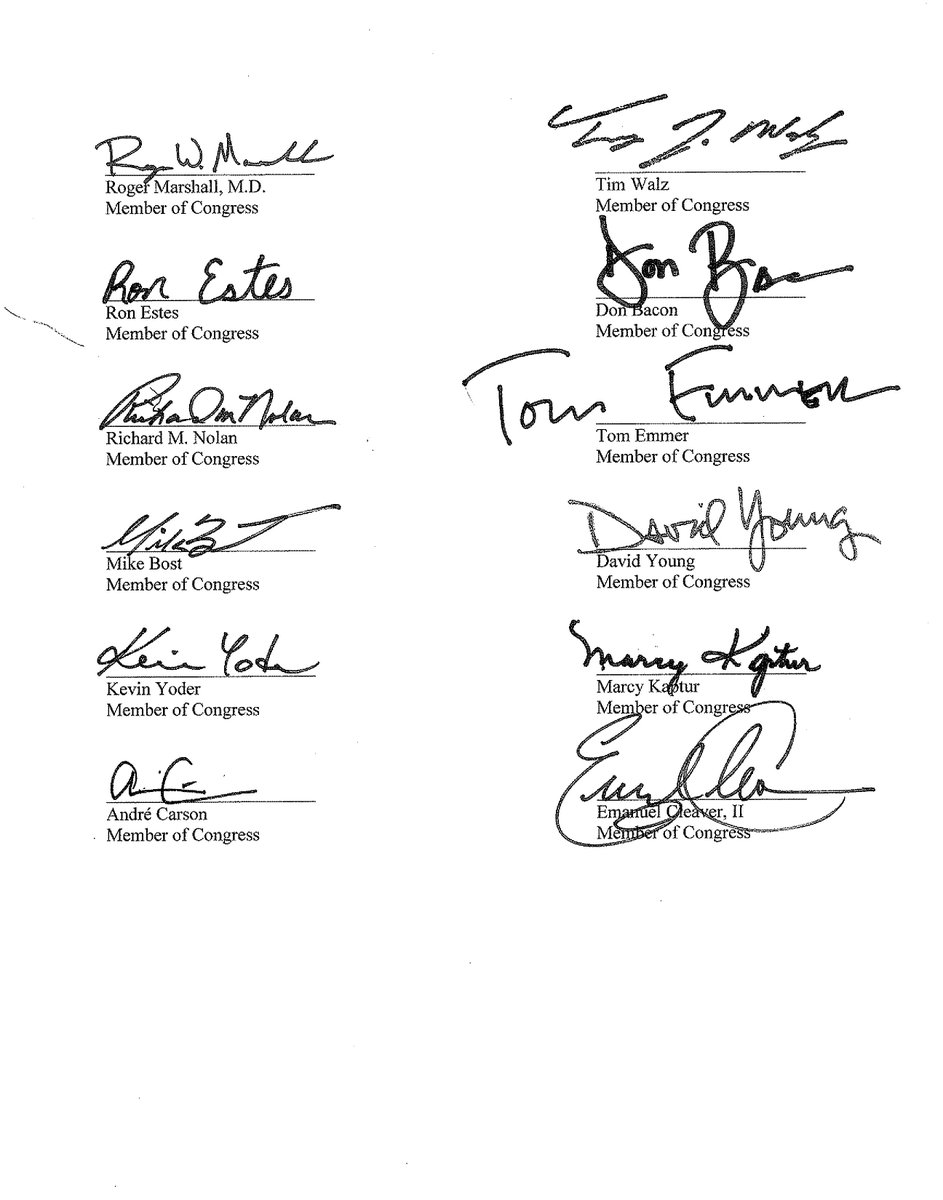 Roger W. Marshall
Roger Marshall, M.D.
Member of Congress
Ron Estes
Ron Estes
Member of Congress
Richard M Nolan
Richard M. Nolan
Member of Congress
Mike Bost
Mike Bost
Member of Congress
Kevin Yoder
Kevin Yoder
Member of Congress
André Carson
Member of Congress
Tim J. Walz
Tim Walz
Member of Congress
Don Bacon
Don Bacon
Member of Congress
Tom Emmer
Tom Emmer
Member of Congress
David Young
David Young
Member of Congress
Marcy Kaptur
Marcy Kaptur
Member of Congress
Emanuel Cleaver, II
Member of Congress